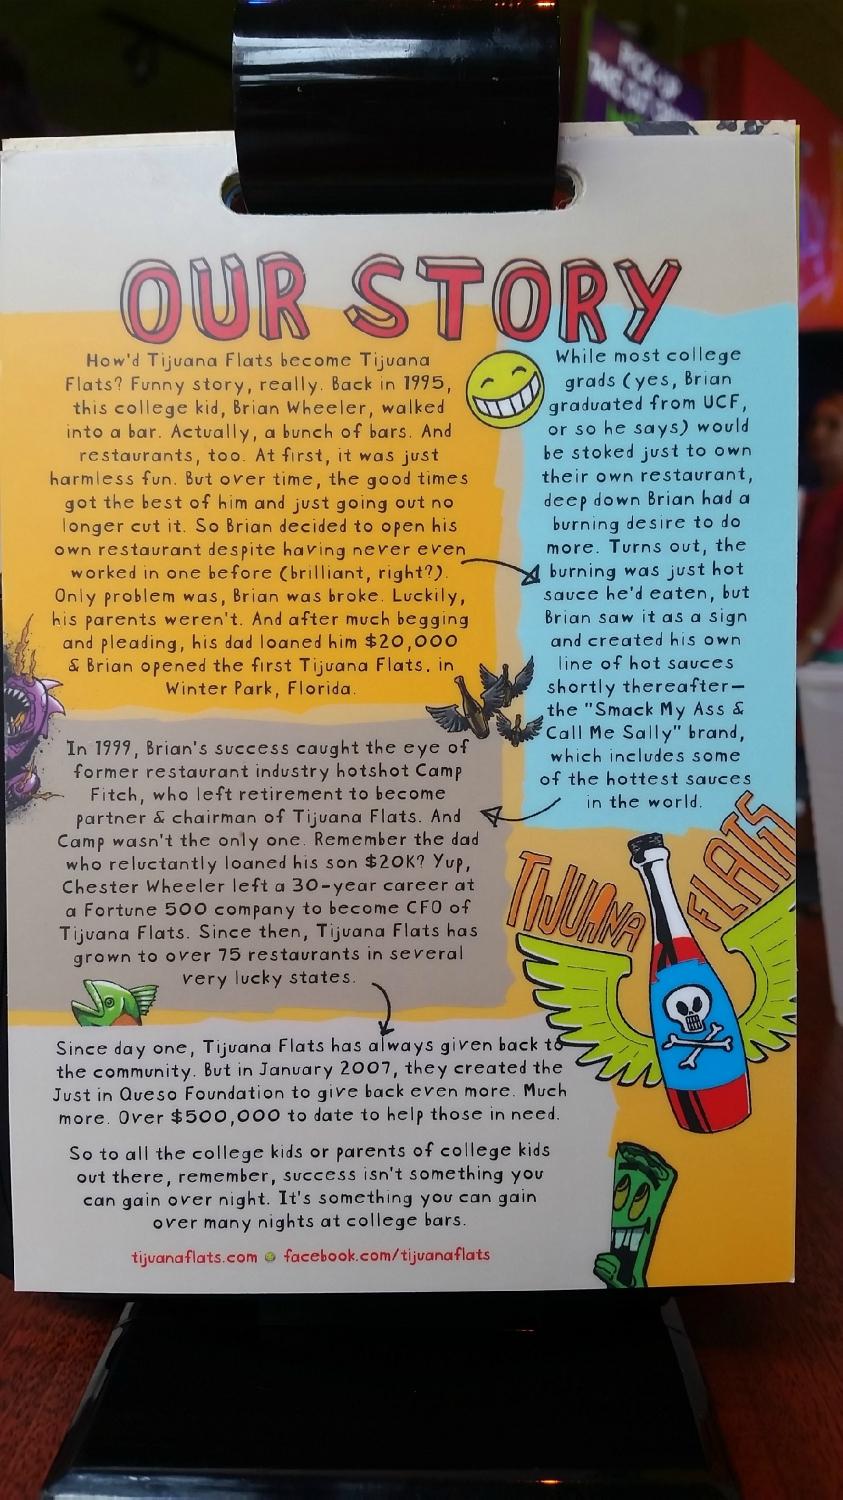 OUR STORY
How'd Tijuana Flats become Tijuana
Flats? Funny story, really. Back in 1995,
this college kid, Brian Wheeler, walked
into a bar. Actually, a bunch of bars. And
restaurants, too. At first, it was just
harmless fun. But over time, the good times
got the best of him and just going out no
longer cut it. So Brian decided to open his
own restaurant despite having never even
worked in one before (brilliant, right?).
Only problem was, Brian was broke. Luckily,
his parents weren't. And after much begging
and pleading, his dad loaned him $20,000
& Brian opened the first Tijuana Flats. in
Winter Park, Florida.
While most college
grads (yes, Brian
graduated from UCF,
or so he says) would
be stoked just to own
their own restaurant,
deep down Brian had a
burning desire to do
more. Turns out, the
burning was just hot
sauce he'd eaten, but
Brian saw it as a sign
and created his own
line of hot sauces
shortly thereafter—
the "Smack My Ass &
Call Me Sally" brand,
which includes some
of the hottest sauces
in the world.
In 1999, Brian's success caught the eye of
former restaurant industry hotshot Camp
Fitch, who left retirement to become
partner & chairman of Tijuana Flats. And
Camp wasn't the only one. Remember the dad
who reluctantly loaned his son $20K? Yup,
Chester Wheeler left a 30-year career at
a Fortune 500 company to become CFO of
Tijuana Flats. Since then, Tijuana Flats has
grown to over 75 restaurants in several
very lucky states.
TIJUANA FLATS
Since day one, Tijuana Flats has always given back to
the community. But in January 2007, they created the
Just in Queso Foundation to give back even more. Much
more. Over $500,000 to date to help those in need.
So to all the college kids or parents of college kids
out there, remember, success isn't something you
can gain over night. It's something you can gain
over many nights at college bars.
tijuanaflats.com facebook.com/tijuanaflats